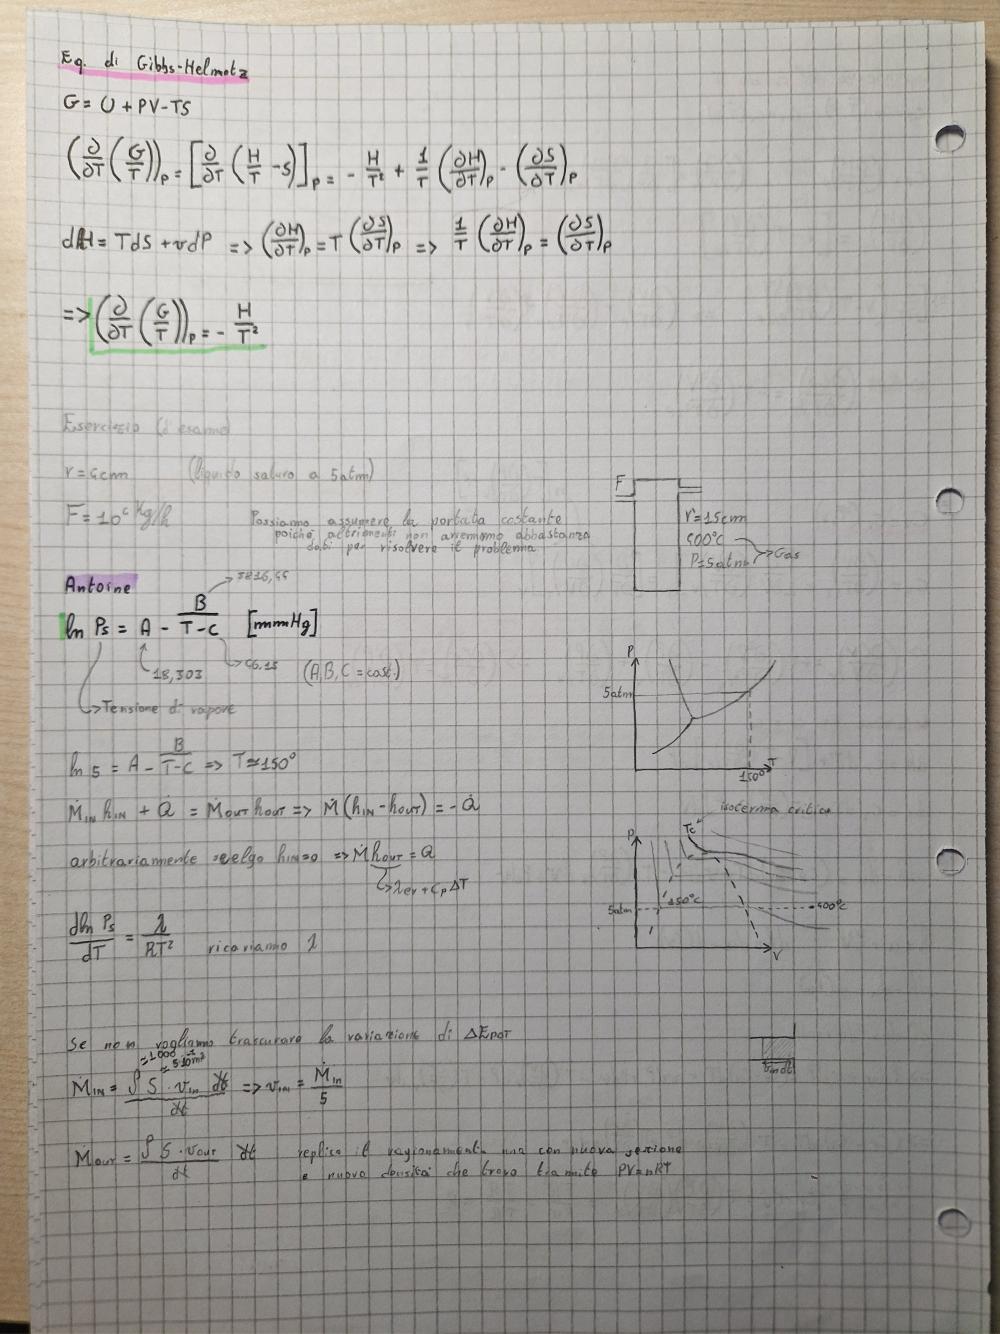 Eq. di Gibbs-Helmotz
G = U + PV - TS
(∂/∂T (G/T))_P = [∂/∂T (H/T - S)]_P = - H/T² + 1/T (∂H/∂T)_P - (∂S/∂T)_P
dH = TdS + vdP => (∂H/∂T)_P = T (∂S/∂T)_P => 1/T (∂H/∂T)_P = (∂S/∂T)_P
=> (∂/∂T (G/T))_P = - H/T²
Esercizio (d'esame)
r = 4cm (liquido saturo a 5atm)
F = 10⁴ Kg/h
Possiamo assumere la portata costante
poiché altrimenti non avremmo abbastanza
dati per risolvere il problema
F
r = 15cm
400°C
P = 5atm
Gas
Antoine
ln Ps = A - B/(T-C) [mmHg]
18,303
(A,B,C = cost.)
Tensione di vapore
P
5atm
150°
T
ln 5 = A - B/(T-C) => T ≃ 150°
Ṁ_IN h_IN + Q̇ = Ṁ_OUT h_OUT => Ṁ(h_IN - h_OUT) = - Q̇
isoterma critica
arbitrariamente scelgo h_IN=0 => Ṁ h_OUT = Q̇
λev + Cp ΔT
P
Tc
5atm
150°C
400°C
V
dln Ps/dT = λ/RT² ricaviamo λ
Se non vogliamo trascurare la variazione di ΔE_POT
≃1000
Ṁ_IN = ρ S · v_IN dt/dt => v_IN = Ṁ_in/5
v_in dt
Ṁ_OUT = ρ S · v_OUT dt/dt replico il ragionamento ma con nuova sezione
e nuova densità che trovo tramite PV=nRT